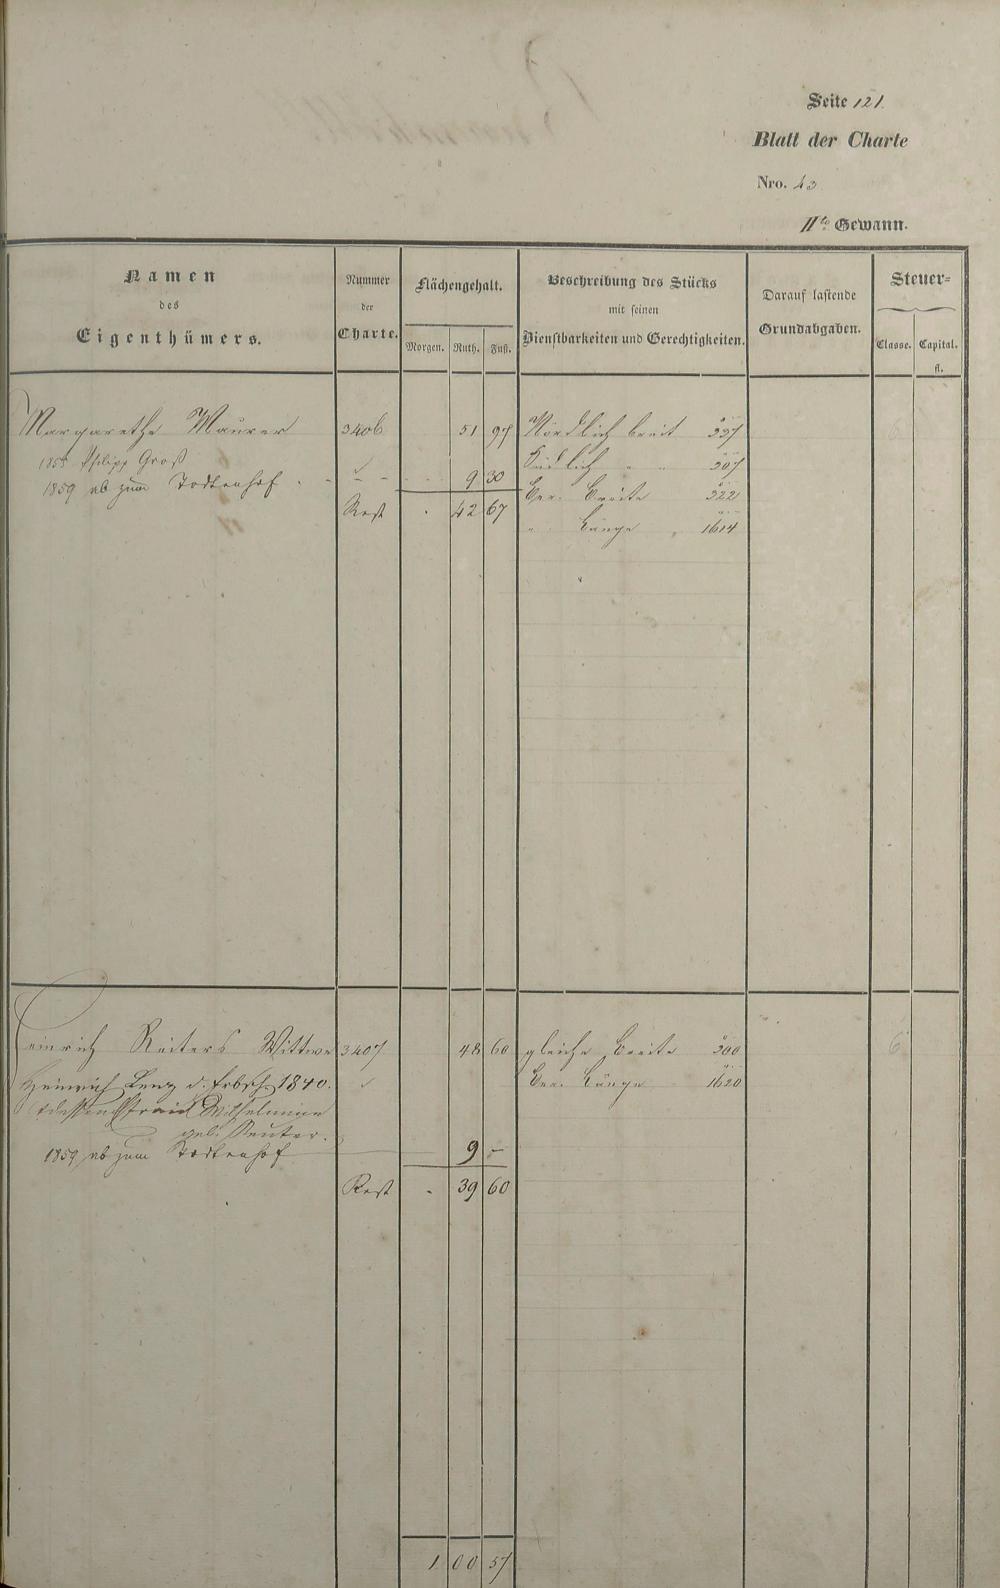 Seite 121.
Blatt der Charte
Nro. 43
IIte Gewann.
Namen
des
Eigenthümers.
Nummer
der
Charte.
Flächengehalt.
Morgen. Ruth. Fuß.
Beschreibung des Stücks
mit seinen
Dienstbarkeiten und Gerechtigkeiten.
Darauf lastende
Grundabgaben.
Steuer=
Classe. Capital.
fl.
Margarethe Maurer 3406 51 97 Nördlich breit 337 6
1855 Philipp Groß Südlich " " 307
1859 ab zum Todtenhof - - - 9 30
Ger. Breite 322
Rest . 42 67
" Länge " 1614
Heinrich Reiters Wittwe 3407 48 60 gleiche Breite 300 6
Heinrich Lenz d. Erbsch. 1840. Ger. Länge 1620
dessen Wilhelmine
geb. Reuter.
1859 ab zum Todtenhof 9 -
Rest . 39 60
1 00 57